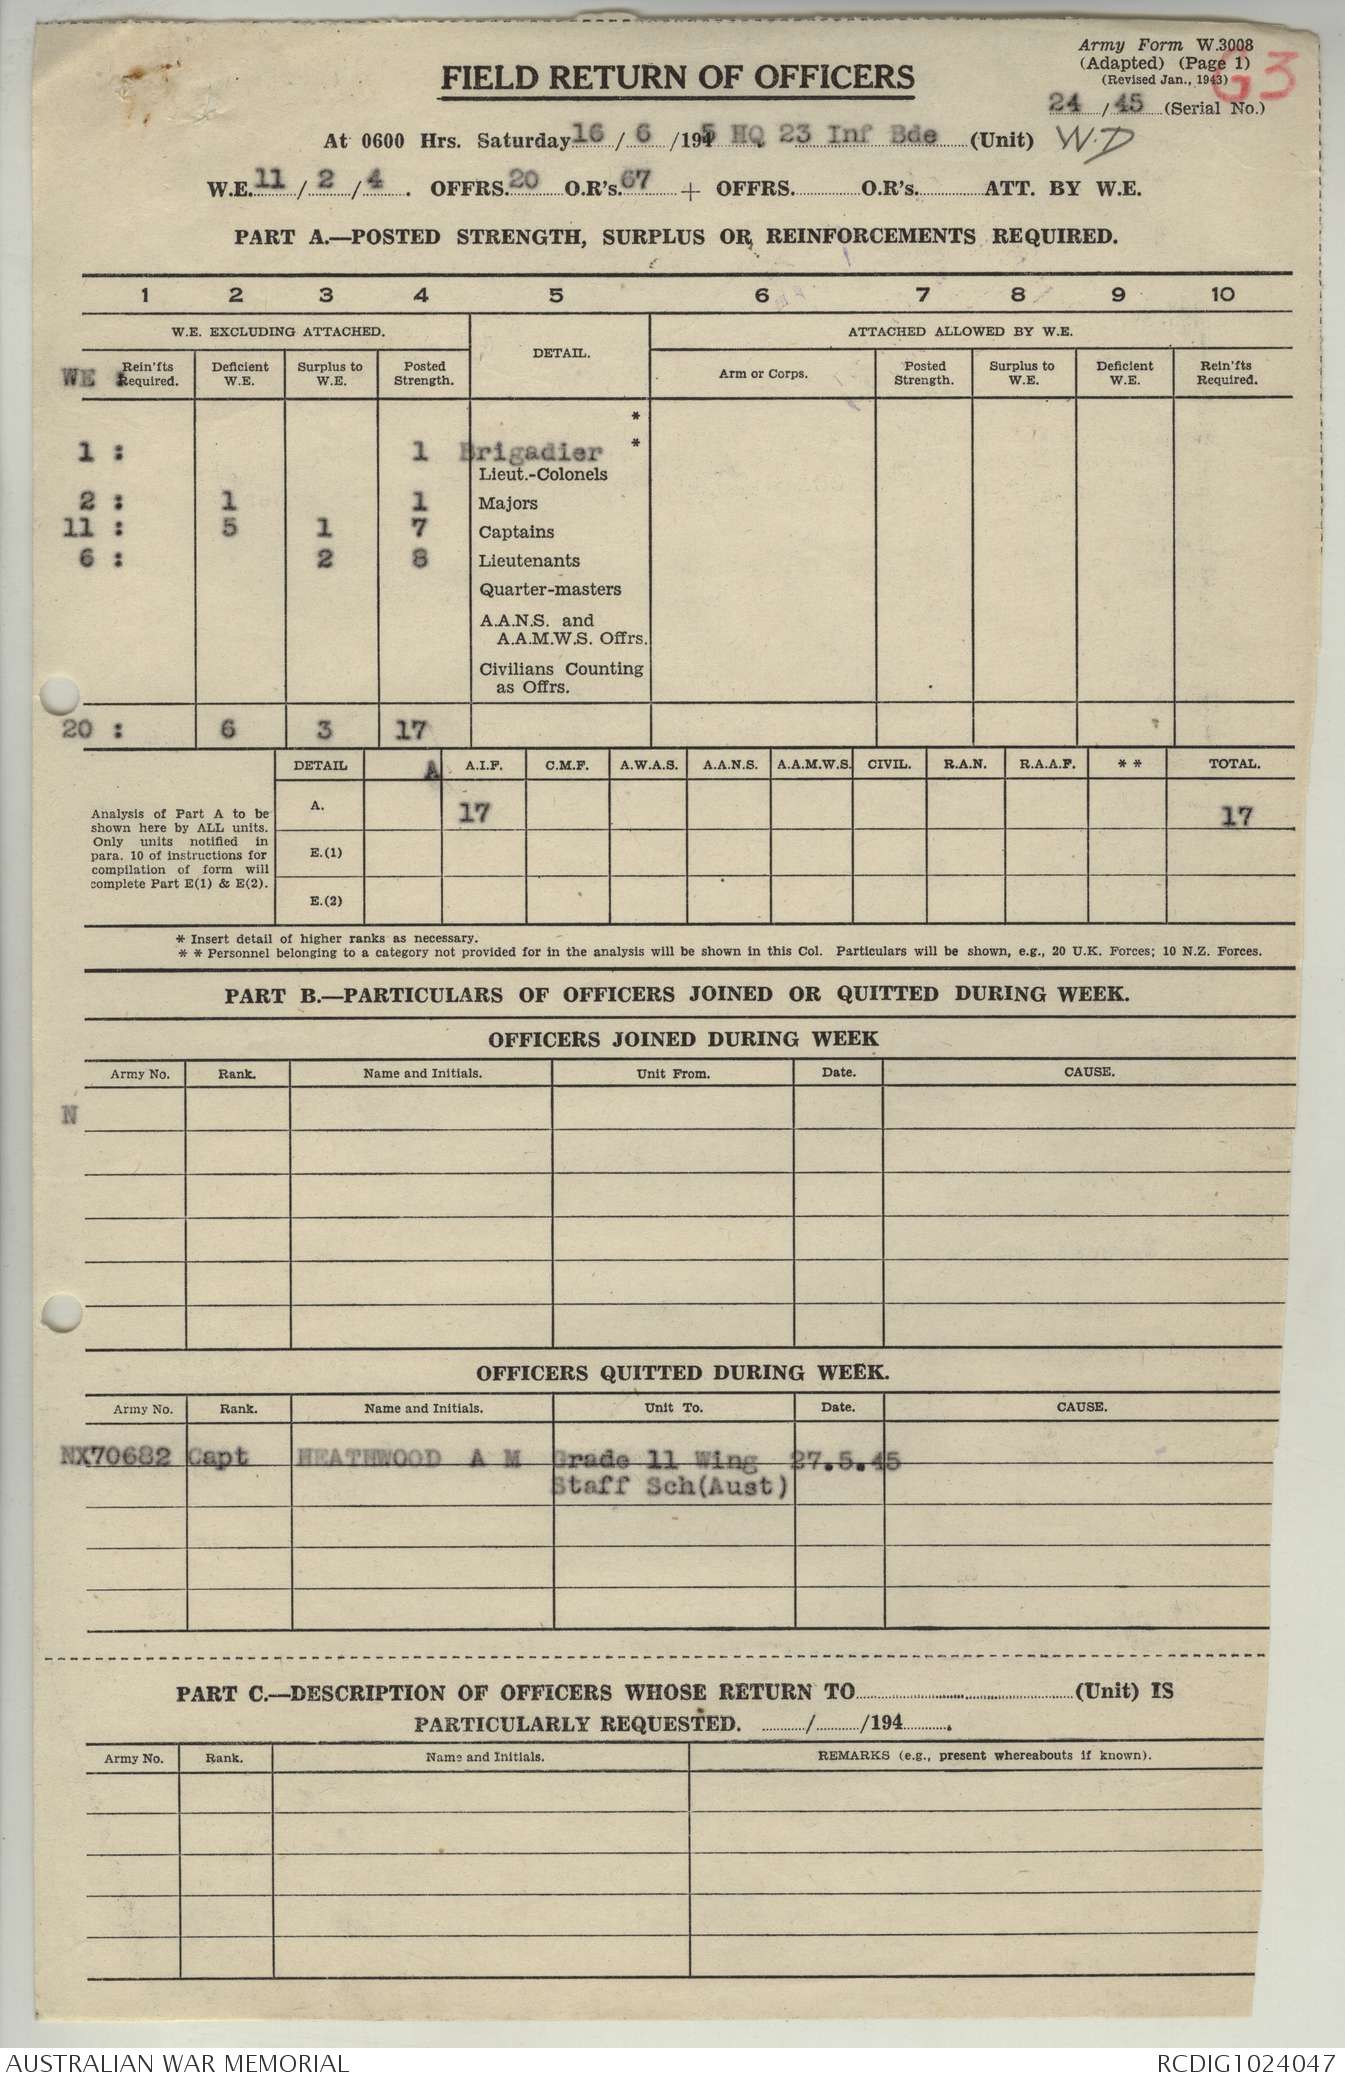 Army Form W.3008
(Adapted) (Page 1)
(Revised Jan., 1943)
G3
FIELD RETURN OF OFFICERS
24 / 45 (Serial No.)
At 0600 Hrs. Saturday 16 / 6 /1945 HQ 23 Inf Bde (Unit) W.D
W.E. 11 / 2 / 4 . OFFRS. 20 O.R's. 67 + OFFRS. O.R's. ATT. BY W.E.
PART A.—POSTED STRENGTH, SURPLUS OR REINFORCEMENTS REQUIRED.
1 2 3 4 5 6 7 8 9 10
W.E. EXCLUDING ATTACHED. DETAIL. ATTACHED ALLOWED BY W.E.
WE : Rein'fts Required. Deficient W.E. Surplus to W.E. Posted Strength. Arm or Corps. Posted Strength. Surplus to W.E. Deficient W.E. Rein'fts Required.
*
1 : 1 Brigadier *
Lieut.-Colonels
2 : 1 1 Majors
11 : 5 1 7 Captains
6 : 2 8 Lieutenants
Quarter-masters
A.A.N.S. and
A.A.M.W.S. Offrs.
Civilians Counting
as Offrs.
20 : 6 3 17
DETAIL A A.I.F. C.M.F. A.W.A.S. A.A.N.S. A.A.M.W.S. CIVIL. R.A.N. R.A.A.F. * * TOTAL.
Analysis of Part A to be
shown here by ALL units.
Only units notified in
para. 10 of instructions for
compilation of form will
complete Part E(1) & E(2).
A. 17 17
E.(1)
E.(2)
* Insert detail of higher ranks as necessary.
* * Personnel belonging to a category not provided for in the analysis will be shown in this Col. Particulars will be shown, e.g., 20 U.K. Forces; 10 N.Z. Forces.
PART B.—PARTICULARS OF OFFICERS JOINED OR QUITTED DURING WEEK.
OFFICERS JOINED DURING WEEK
Army No. Rank. Name and Initials. Unit From. Date. CAUSE.
N
OFFICERS QUITTED DURING WEEK.
Army No. Rank. Name and Initials. Unit To. Date. CAUSE.
NX70682 Capt HEATHWOOD A M Grade 11 Wing 27.5.45
Staff Sch(Aust)
PART C.—DESCRIPTION OF OFFICERS WHOSE RETURN TO (Unit) IS
PARTICULARLY REQUESTED. / /194 .
Army No. Rank. Name and Initials. REMARKS (e.g., present whereabouts if known).
AUSTRALIAN WAR MEMORIAL RCDIG1024047